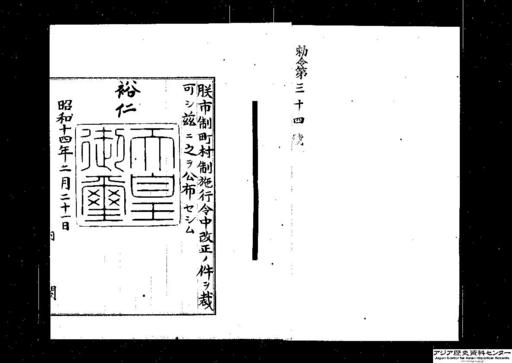 勅令第三十四號
朕市制町村制施行令中改正ノ件ヲ裁
可シ茲ニ之ヲ公布セシム
裕仁
天皇
御璽
昭和十四年二月二十一日
内閣
アジア歴史資料センター
Japan Center for Asian Historical Records